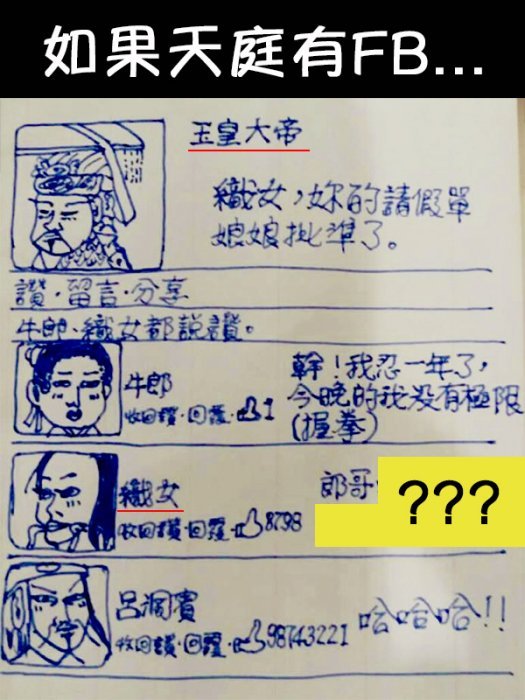 如果天庭有FB...
玉皇大帝
織女，妳的請假單
娘娘批準了。
讚·留言·分享
牛郎、織女都說讚。
牛郎
收回讚·回覆·1
幹！我忍一年了，
今晚的我沒有極限
(握拳)
織女
收回讚·回覆·8798
郎哥
???
呂洞賓
收回讚·回覆·98743221
哈哈哈!!